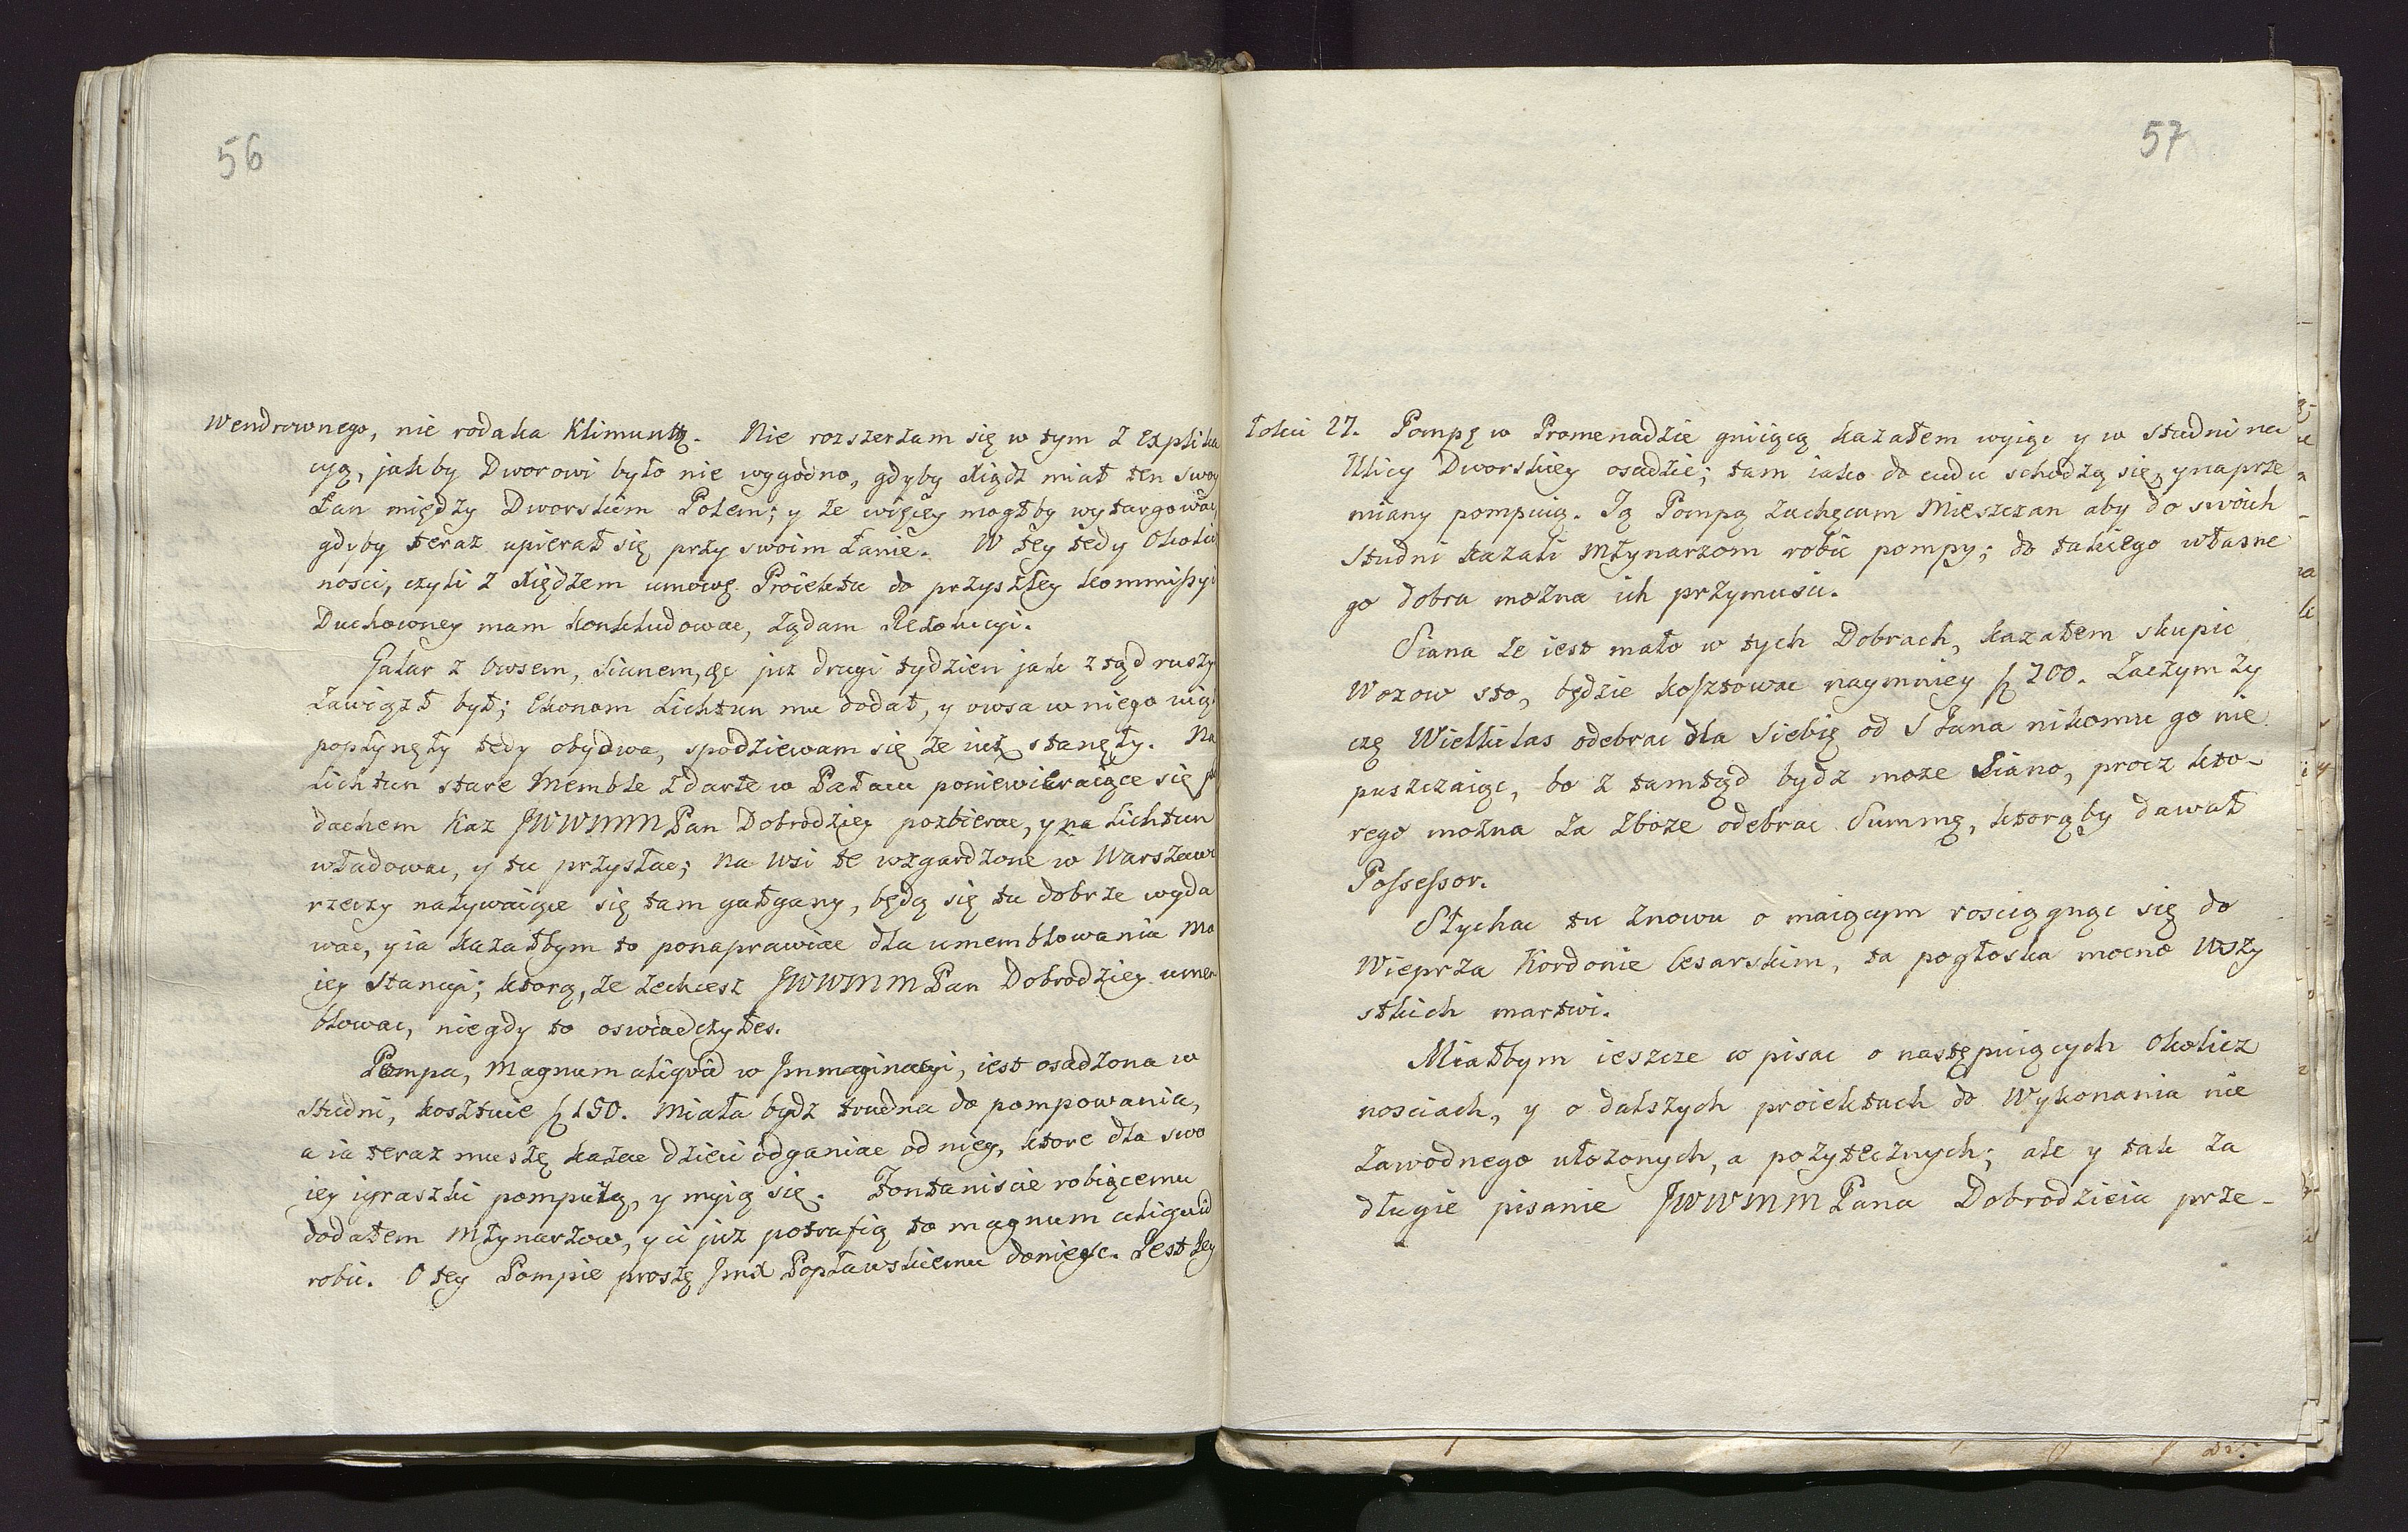 56
Wendrownego, nie rodaka Klimuntt. Nie rozszerzam się w tym z Explika
cyą, jakby Dworowi było nie wygodno, gdyby Xiądz miał ten swoy
Łan między Dworskiem Polem; y że więcey mogłby wytargować
gdyby teraz upierał się przy swoim Łanie. W tey tedy Okolicz
nosci, czyli z Xiędzem umowę Proiektu do przyszłey kommissyi
Duchowney mam konkludowac, żądam Rezolucyi.
Galar z Owsem, Sianem, &c już drugi tydzien jak ztąd ruszy
zawiązł był; Ekonom Lichtun mu dodał, y owsa w niego
popłynęły tedy obydwa, spodziewam się że iuż stanęły. Na
Lichtun stare Memble zdarte w Pałacu poniewieraiące się
dachem Każ JWWMM Pan Dobrodziey pozbierac, y na Lichtun
władowac, y tu przysłac; na wsi te wzgardzone w Warszawi
rzeczy nazywaiące się tam gałgany, będą się tu dobrze wyda
wac, y ia kazałbym to ponaprawiac dla umemblowania Mo
iey Stancyi; ktorą, że zechcesz JWWMM Pan Dobrodziey umem
blowac, niegdy to oswiadczyłes.
Pompa, Magnum aliqvid w Jmmaginacyi, iest osadzona w
Studni, kosztuie f 150. Miała bydz trudna do pompowania,
a ia teraz muszę kazac dzieci odganiac od niey, ktore dla swo
iey igraszki pompuią, y myią się. Fontaniscie robiącemu
dodałem Młynarzow, y ci już potrafią to magnum aliquid
robic. O tey Pompie proszę Jmć Popławskiemu doniesc. Jest Jey
57
Łokci 27. Pompę w Promenadzie gniiącą kazałem wyiąc y w studni na
Ulicy Dworskiey osadzic; tam iako do cudu schodzą się, y naprze
miany pompuią. Tą Pompą zachęcam Mieszczan aby do swoich
Studni kazali Młynarzom robic pompy; do takiego własne
go dobra można ich przymusic.
Siana że iest mało w tych Dobrach, kazałem skupic
Wozow sto, będzie kosztowac naymniey f 700. Zaczym ży
czę Wielkilas odebrac dla Siebie od S Jana nikomu go nie
puszczaiąc, bo z tamtąd bydz może Siano, procz kto-
rego można za zboże odebrac Summę, ktorąby dawał
Possessor.
Słychac tu znowu o maiącym rosciągnąc się do
Wieprza Kordonie Cesarskim, ta pogłoska mocno Wszy
stkich martwi.
Miałbym ieszcze w pisac o następuiących Okolicz
nosciach, y o dalszych proiektach do Wykonania nie
zawodnego ułożonych, a pożytecznych; ale y tak za
długie pisanie JWWMM Pana Dobrodzieia prze-